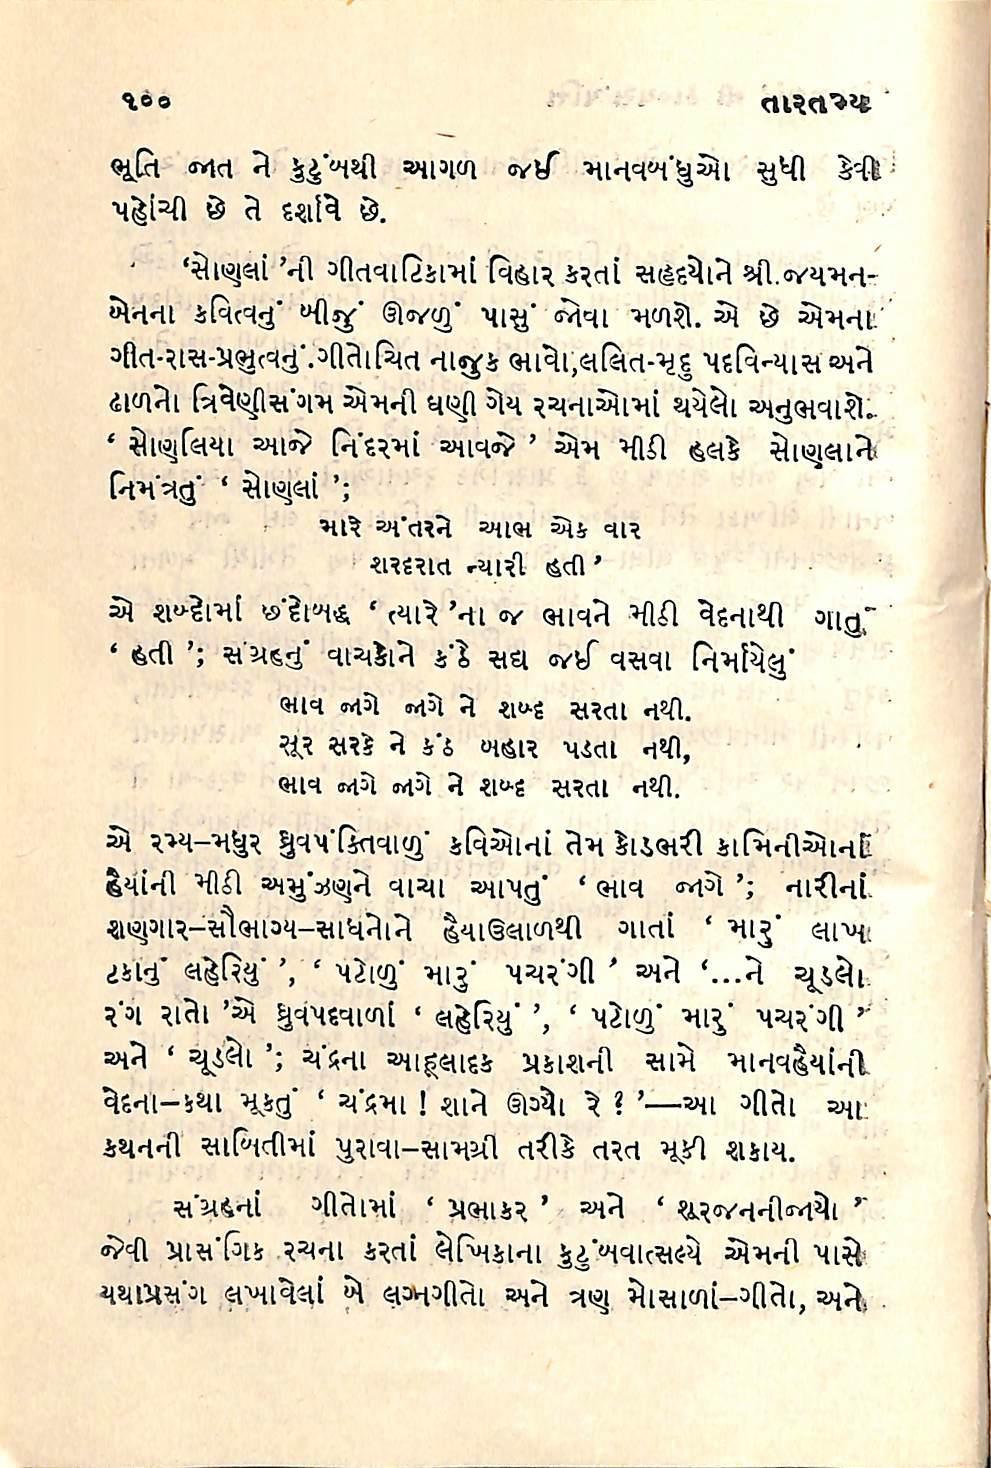 ૧૦૦ તારતમ્ય
ભૂતિ જાત ને કુટુંબથી આગળ જઈ માનવબંધુઓ સુધી કેવી
પહોંચી છે તે દર્શાવે છે.
‘સોણલાં ’ની ગીતવાટિકામાં વિહાર કરતાં સહૃદયોને શ્રી.જયમન-
બેનના કવિત્વનું બીજું ઊજળું પાસું જોવા મળશે. એ છે એમના
ગીત-રાસ-પ્રભુત્વનું.ગીતોચિત નાજુક ભાવો,લલિત-મૃદુ પદવિન્યાસ અને
ઢાળનો ત્રિવેણીસંગમ એમની ઘણી ગેય રચનાઓમાં થયેલો અનુભવાશે.
‘ સોણલિયા આજે નિંદરમાં આવજે ’ એમ મીઠી હલકે સોણલાને
નિમંત્રતું ‘ સોણલાં ’;
મારે અંતરને આભ એક વાર
શરદરાત ન્યારી હતી’
એ શબ્દોમાં છંદોબદ્ધ ‘ ત્યારે ’ના જ ભાવને મીઠી વેદનાથી ગાતુ
‘ હતી ’; સંગ્રહનું વાચકોને કંઠે સદ્ય જઈ વસવા નિર્માયેલું
ભાવ જાગે જાગે ને શબ્દ સરતા નથી.
સૂર સરકે ને કંઠ બહાર પડતા નથી,
ભાવ જાગે જાગે ને શબ્દ સરતા નથી.
એ રમ્ય–મધુર ધ્રુવપંક્તિવાળું કવિઓનાં તેમ કોડભરી કામિનીઓનાં
હૈયાંની મીઠી અમુંઝણને વાચા આપતું ‘ ભાવ જાગે ’; નારીનાં
શણગાર–સૌભાગ્ય–સાધનોને હૈયાઉલાળથી ગાતાં ‘ મારું લાખ
ટકાનું લહેરિયું ’, ‘ પટોળું મારું પચરંગી ’ અને ‘...ને ચૂડલો
રંગ રાતો ’એ ધ્રુવપદવાળાં ‘ લહેરિયું ’, ‘ પટોળું મારું પચરંગી ’
અને ‘ ચૂડલો ’; ચંદ્રના આહ્‌લાદક પ્રકાશની સામે માનવહૈયાંની
વેદના–કથા મૂકતું ‘ ચંદ્રમા ! શાને ઊગ્યો રે ? ’—આ ગીતો આ
કથનની સાબિતીમાં પુરાવા–સામગ્રી તરીકે તરત મૂકી શકાય.
સંગ્રહનાં ગીતોમાં ‘ પ્રભાકર ’ અને ‘ શૂરજનનીજાયો ’
જેવી પ્રાસંગિક રચના કરતાં લેખિકાના કુટુંબવાત્સલ્યે એમની પાસે
યથાપ્રસંગ લખાવેલાં બે લગ્નગીતો અને ત્રણ મોસાળાં–ગીતો, અને